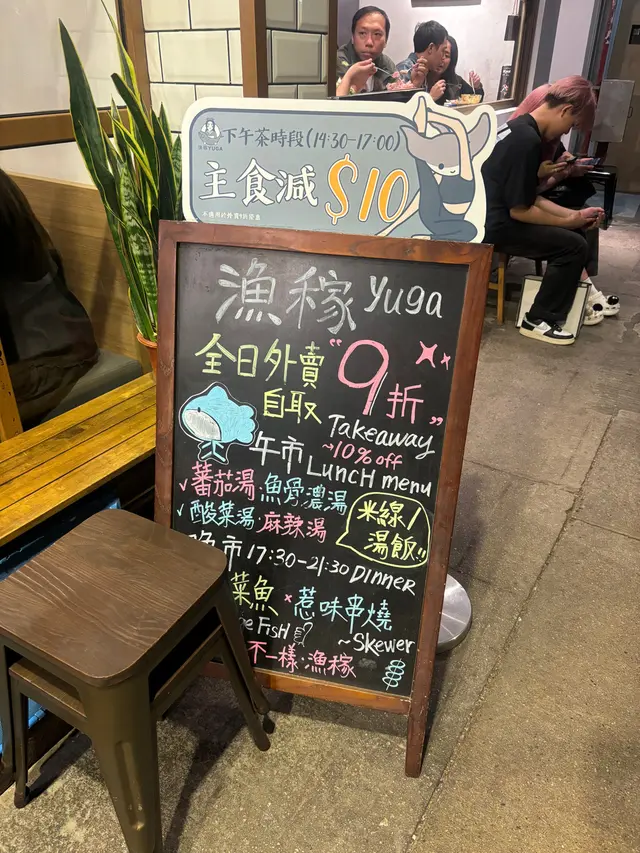 漁稼YUGA
下午茶時段(14:30-17:00)
主食減$10
漁稼 Yuga
全日外賣
自取
"9折"
Takeaway
~10% off
午市 LUNCH menu
✓蕃茄湯 魚骨濃湯
✓酸菜湯 麻辣湯
米線/
湯飯!!
市 17:30-21:30 DINNER
菜魚 × 惹味串燒
FISH ~Skewer
不一樣·漁稼